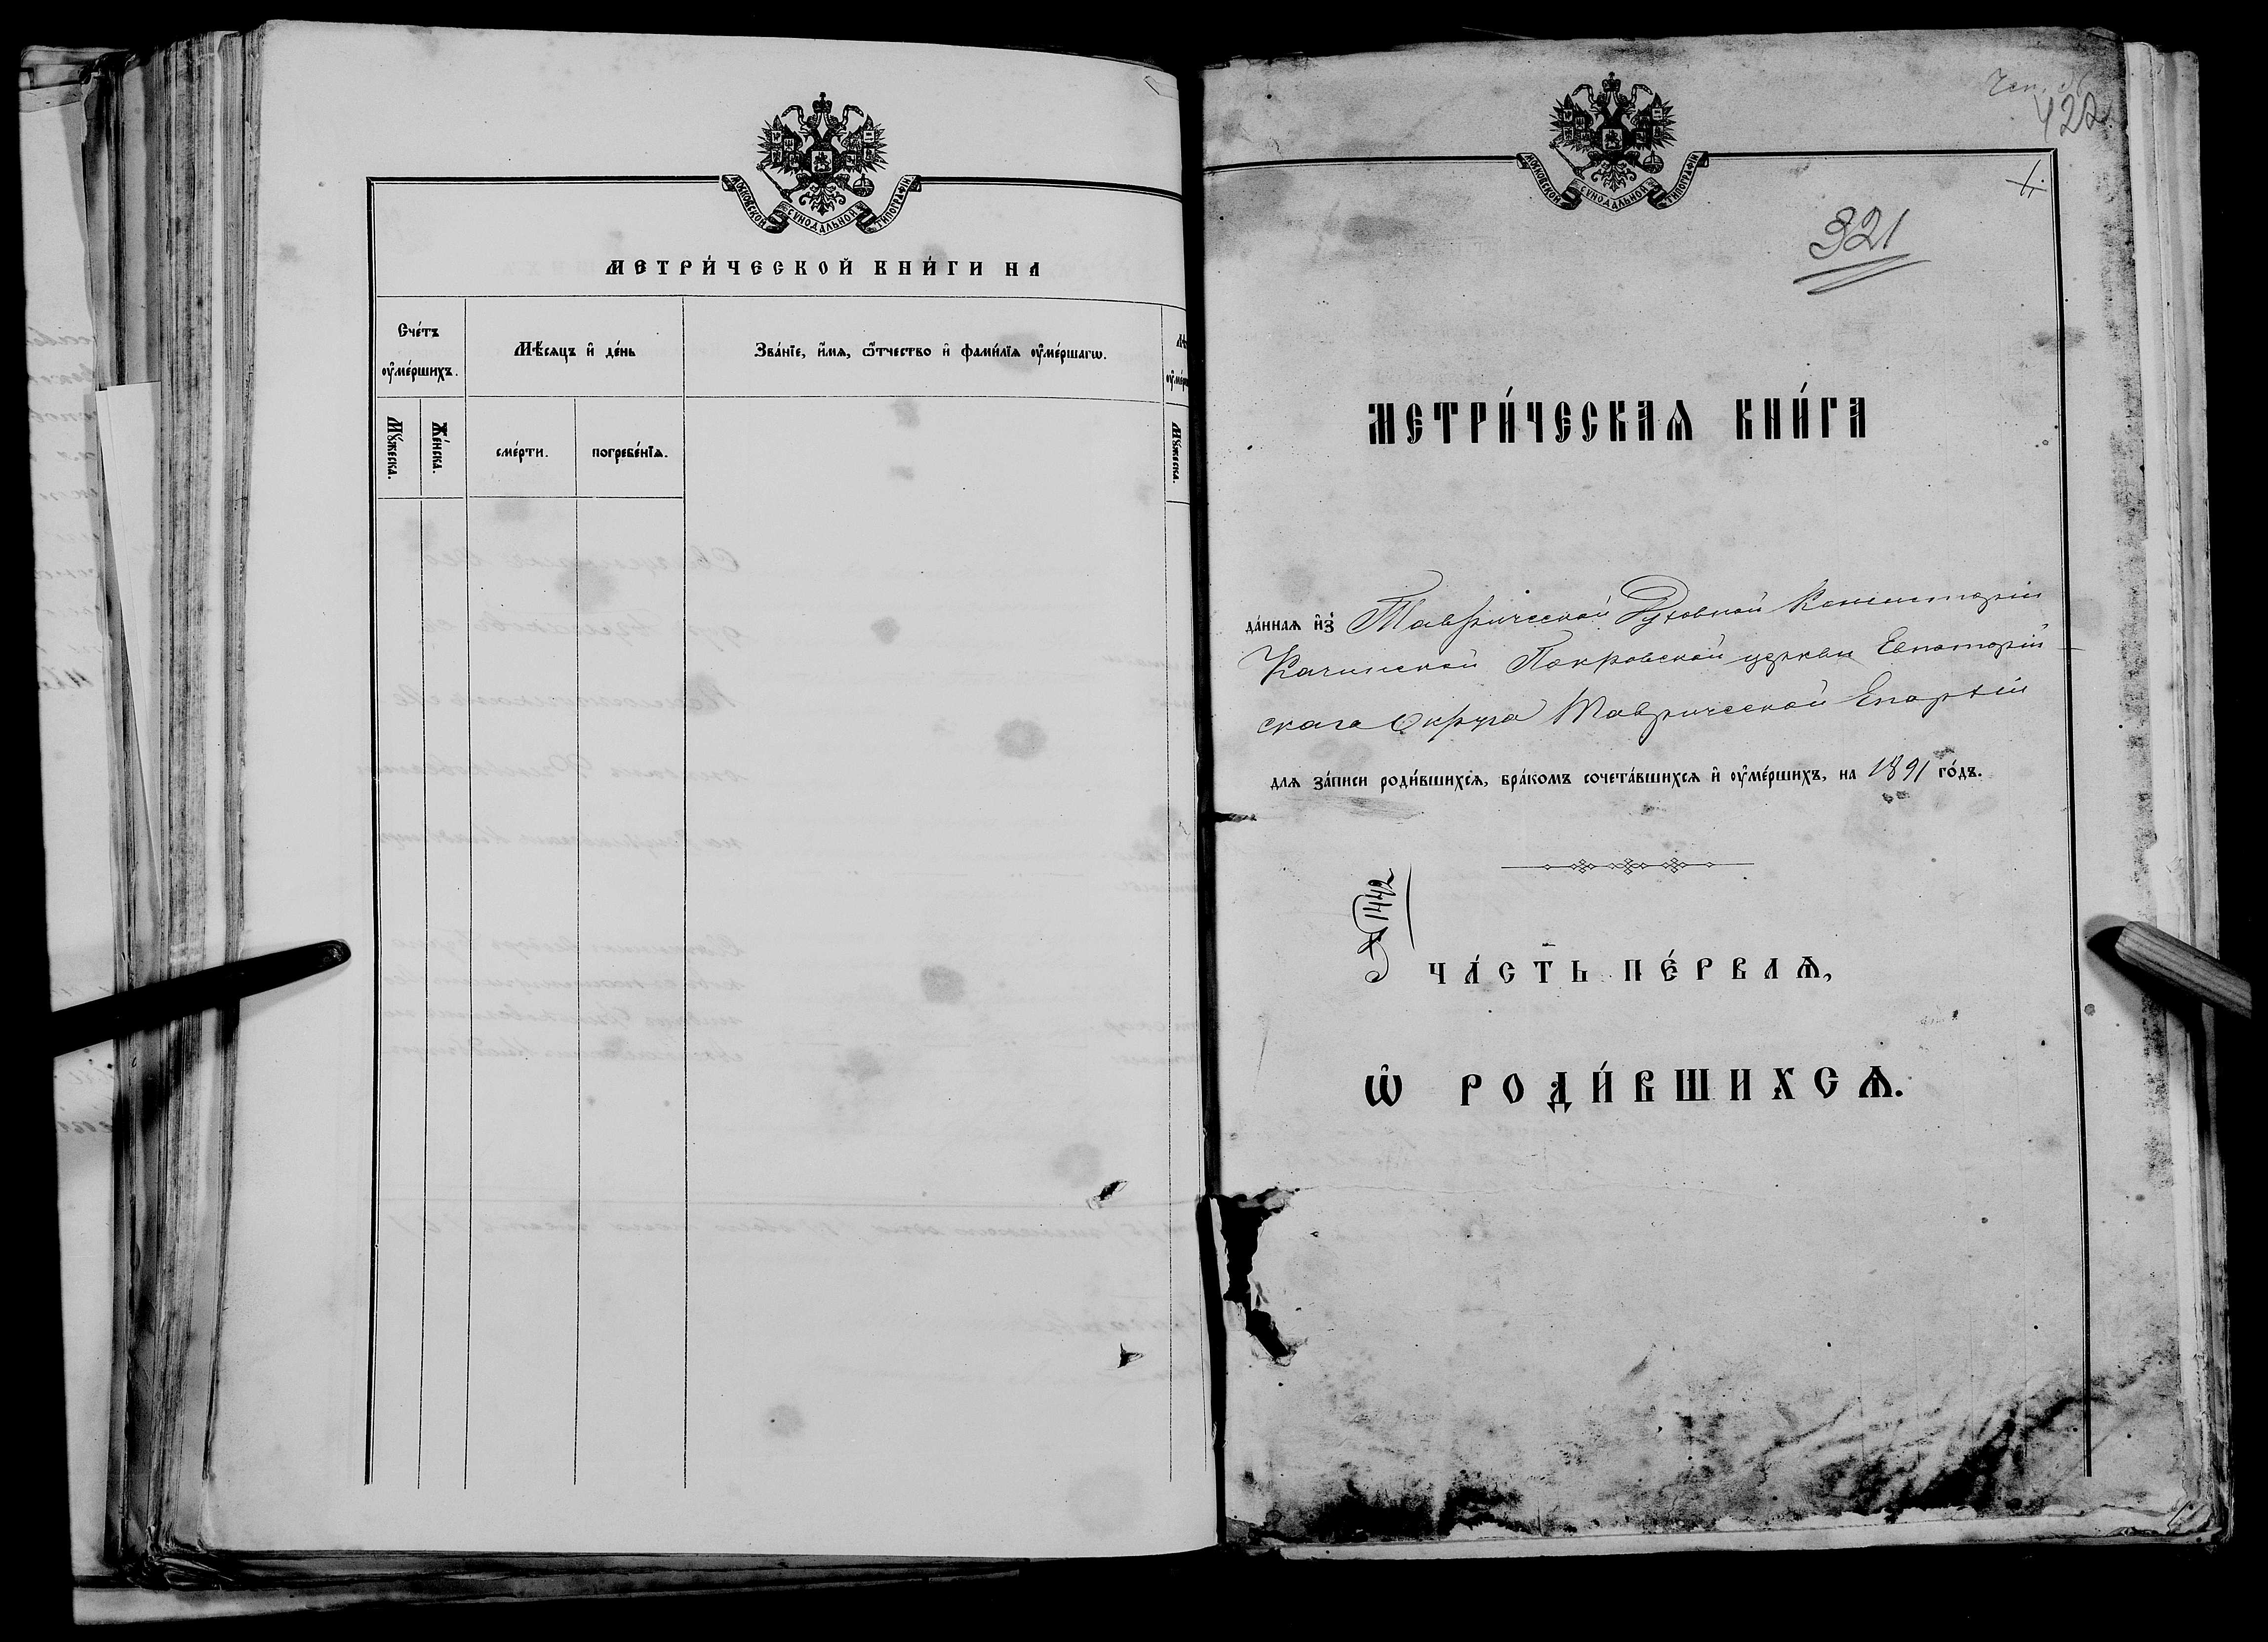 МОСКОВСКОЙ СѴНОДАЛЬНОЙ ТИПОГРАФІИ
МЕТРИ́ЧЕСКОЙ КНИ́ГИ НА
Сче́тъ
ᲂу҆ме́ршихъ.
Мѣ́сяцъ и҆ де́нь
Зва́нїе, и҆́мѧ, ѻ҆́тчество и҆ фами́лїѧ ᲂу҆ме́ршагѡ.
Мꙋ́жеска.
Же́нска.
сме́рти.
погребе́нїѧ.
Мꙋ́жеска.
422
МОСКОВСКОЙ СѴНОДАЛЬНОЙ ТИПОГРАФІИ
321
МЕТРИ́ЧЕСКАѦ КНИ́ГА
да́ннаѧ и҆з̾ Таврической Духовной Консисторіи
Качинской Покровской церкви Евпаторій-
скаго Округа Таврической Епархіи
длѧ за́писи роди́вшихсѧ, бра́комъ сочета́вшихсѧ и҆ ᲂу҆ме́ршихъ, на 1891 го́дъ.
№ 1442
ЧА́СТЬ ПЕ́РВАѦ,
Ѡ҆ РОДИ́ВШИХСѦ.